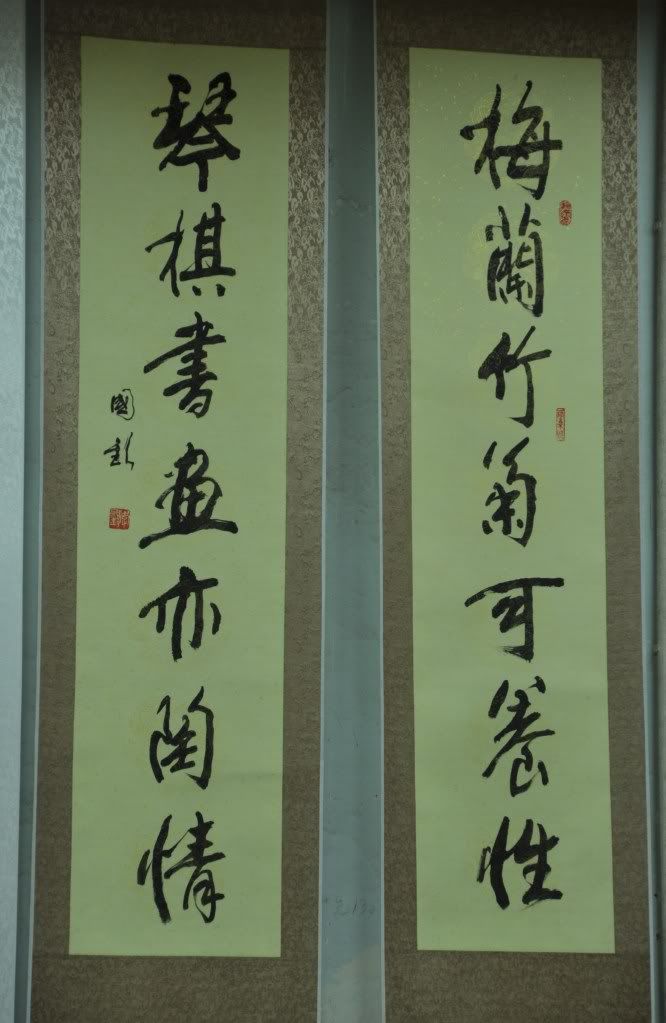 梅蘭竹菊可養性
琴棋書画亦陶情
國彰